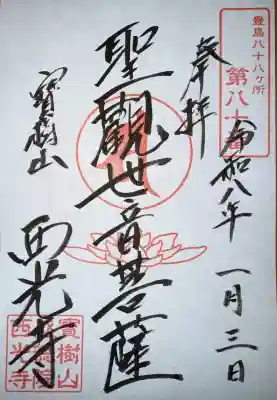 豊島八十八ケ所
第八十番
奉拝
令和八年
一月三日
聖観世音菩薩
寶樹山
西光寺
寶樹山
西光寺